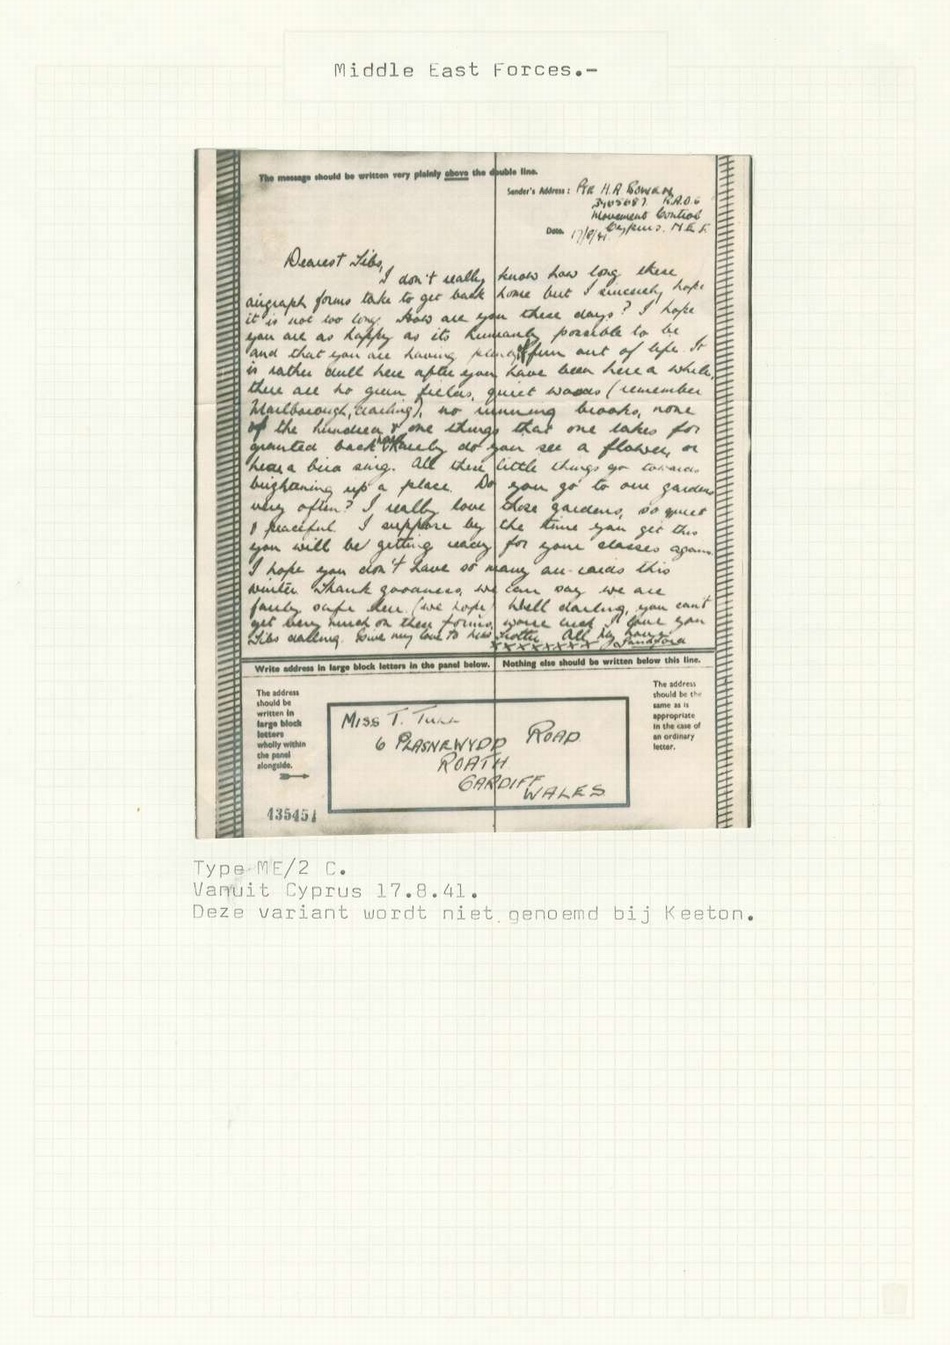 Middle East Forces.-
The message should be written very plainly above the double line.
Sender's Address: Pte H.A.
R.A.O.C
Movement Control
Date. 17/8/41 Cyprus. M.E.F.
Dearest Tibs,
I don't really know how long these
airgraph forms take to get back home but I sincerely hope
it is not too long. How are you these days? I hope
you are as happy as its humanly possible to be
and that you are having plenty of fun out of life. It
is rather dull here after you have been here a while,
there are no green fields, quiet woods (remember
Marlborough, darling), no running brooks, none
of the hundred & one things that one takes for
granted back home do you see a flower, or
hear a bird sing. All these little things go towards
brightening up a place. Do you go to our gardens
very often? I really love those gardens, so quiet
& peaceful. I suppose by the time you get this
you will be getting ready for your classes again.
I hope you don't have so many air-raids this
winter thank goodness, we can say we are
fairly safe here. (we hope) Well darling, you can't
get very much on these forms, worse luck, I love you
Tibs darling. Give my love to All my
xxxxxxxx
Write address in large block letters in the panel below. Nothing else should be written below this line.
The address
should be
written in
large block
letters
wholly within
the panel
alongside.
MISS T.
6 PLASNEWYDD ROAD
ROATH
CARDIFF
WALES
The address
should be the
same as is
appropriate
in the case of
an ordinary
letter.
435451
Type ME/2 C.
Vanuit Cyprus 17.8.41.
Deze variant wordt niet genoemd bij Keeton.